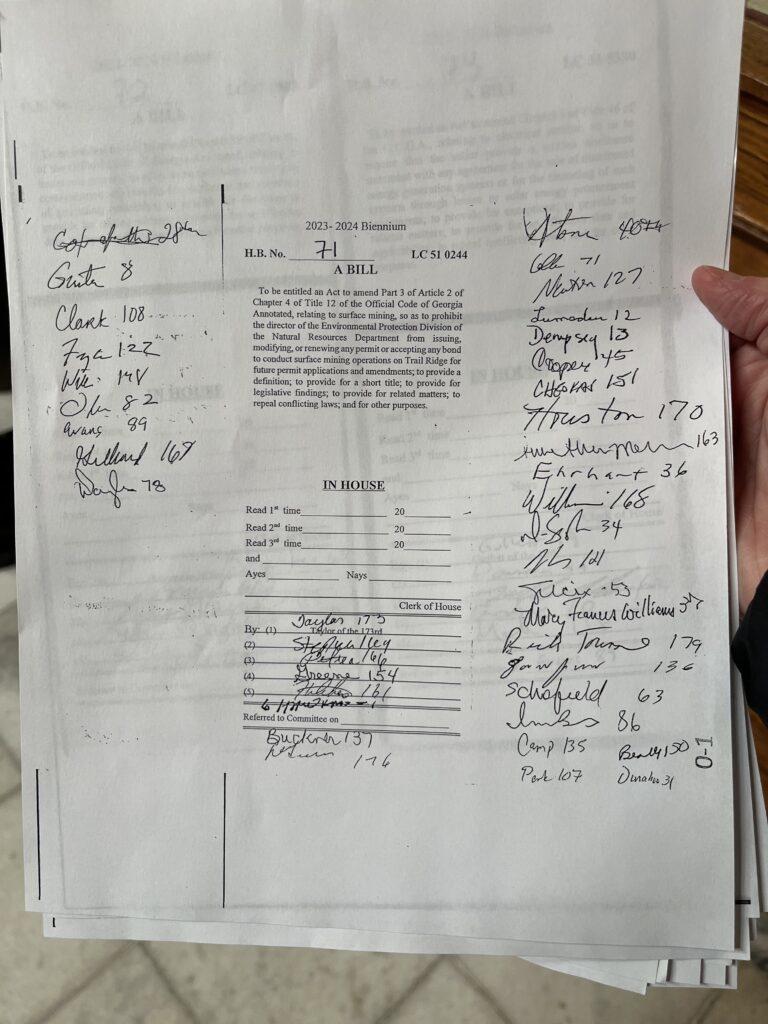 28
Gunter 8
Clark 108
Frye 122
148
82
Evans 89
Hilliard 162
78
2023- 2024 Biennium
H.B. No. 71 LC 51 0244
A BILL
To be entitled an Act to amend Part 3 of Article 2 of
Chapter 4 of Title 12 of the Official Code of Georgia
Annotated, relating to surface mining, so as to prohibit
the director of the Environmental Protection Division of
the Natural Resources Department from issuing,
modifying, or renewing any permit or accepting any bond
to conduct surface mining operations on Trail Ridge for
future permit applications and amendments; to provide a
definition; to provide for a short title; to provide for
legislative findings; to provide for related matters; to
repeal conflicting laws; and for other purposes.
IN HOUSE
Read 1st time 20
Read 2nd time 20
Read 3rd time 20
and
Ayes Nays
Clerk of House
Taylor 173
By: (1) Taylor of the 173rd
(2) Stephens 164
(3) Petrea 166
(4) Greene 154
(5) Hitchens 161
Referred to Committee on
Buckner 137
176
40th
71
Newton 127
Lumsden 12
Dempsey 13
Cooper 45
CHEOKAS 151
Houston 170
163
Ehrhart 36
Williams 168
34
53
Mary Frances Williams 37
Rick Townsend 179
136
Schofield 63
Imbs 86
Camp 135 Beverly 150
Park 107 Donahue 31
0-1